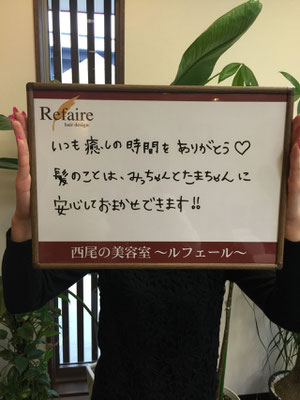 Refaire
hair design
いつも癒しの時間をありがとう♡
髪のことは、みっちゃんとたまちゃんに
安心しておまかせできます!!
西尾の美容室 〜ルフェール〜